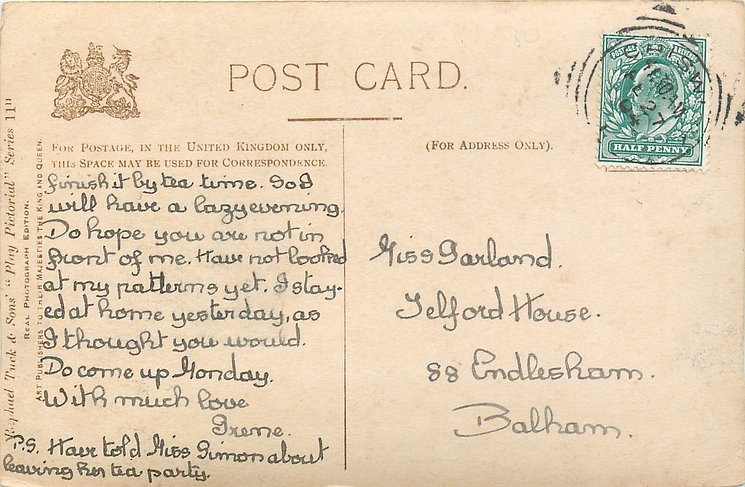 POST CARD.
FOR POSTAGE, IN THE UNITED KINGDOM ONLY,
THIS SPACE MAY BE USED FOR CORRESPONDENCE.
(FOR ADDRESS ONLY).
POSTAGE
HALF PENNY
Raphael Tuck & Sons' "Play Pictorial" Series 11"
REAL PHOTOGRAPH EDITION.
ART PUBLISHERS TO THEIR MAJESTIES THE KING AND QUEEN.
finish it by tea time. So I
will have a lazy evening.
Do hope you are not in
front of me. Have not looked
at my patterns yet. I stay-
ed at home yesterday, as
I thought you would.
Do come up Monday.
With much love
Irene.
P.S. Have told Miss Simon about
leaving her tea party.
Miss Garland.
Telford House.
88 Endlesham.
Balham.